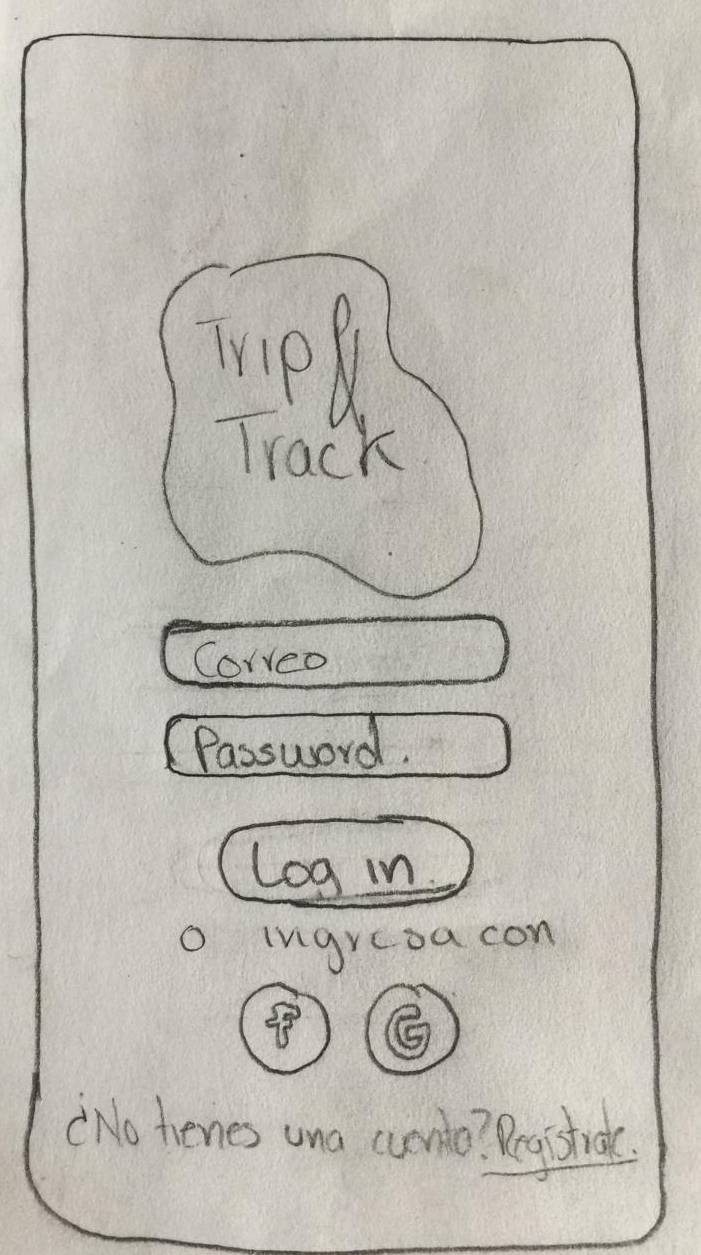 Trip &
Track
Correo
Password.
Log in.
o ingresa con
f G
¿No tienes una cuenta? Regístrate.